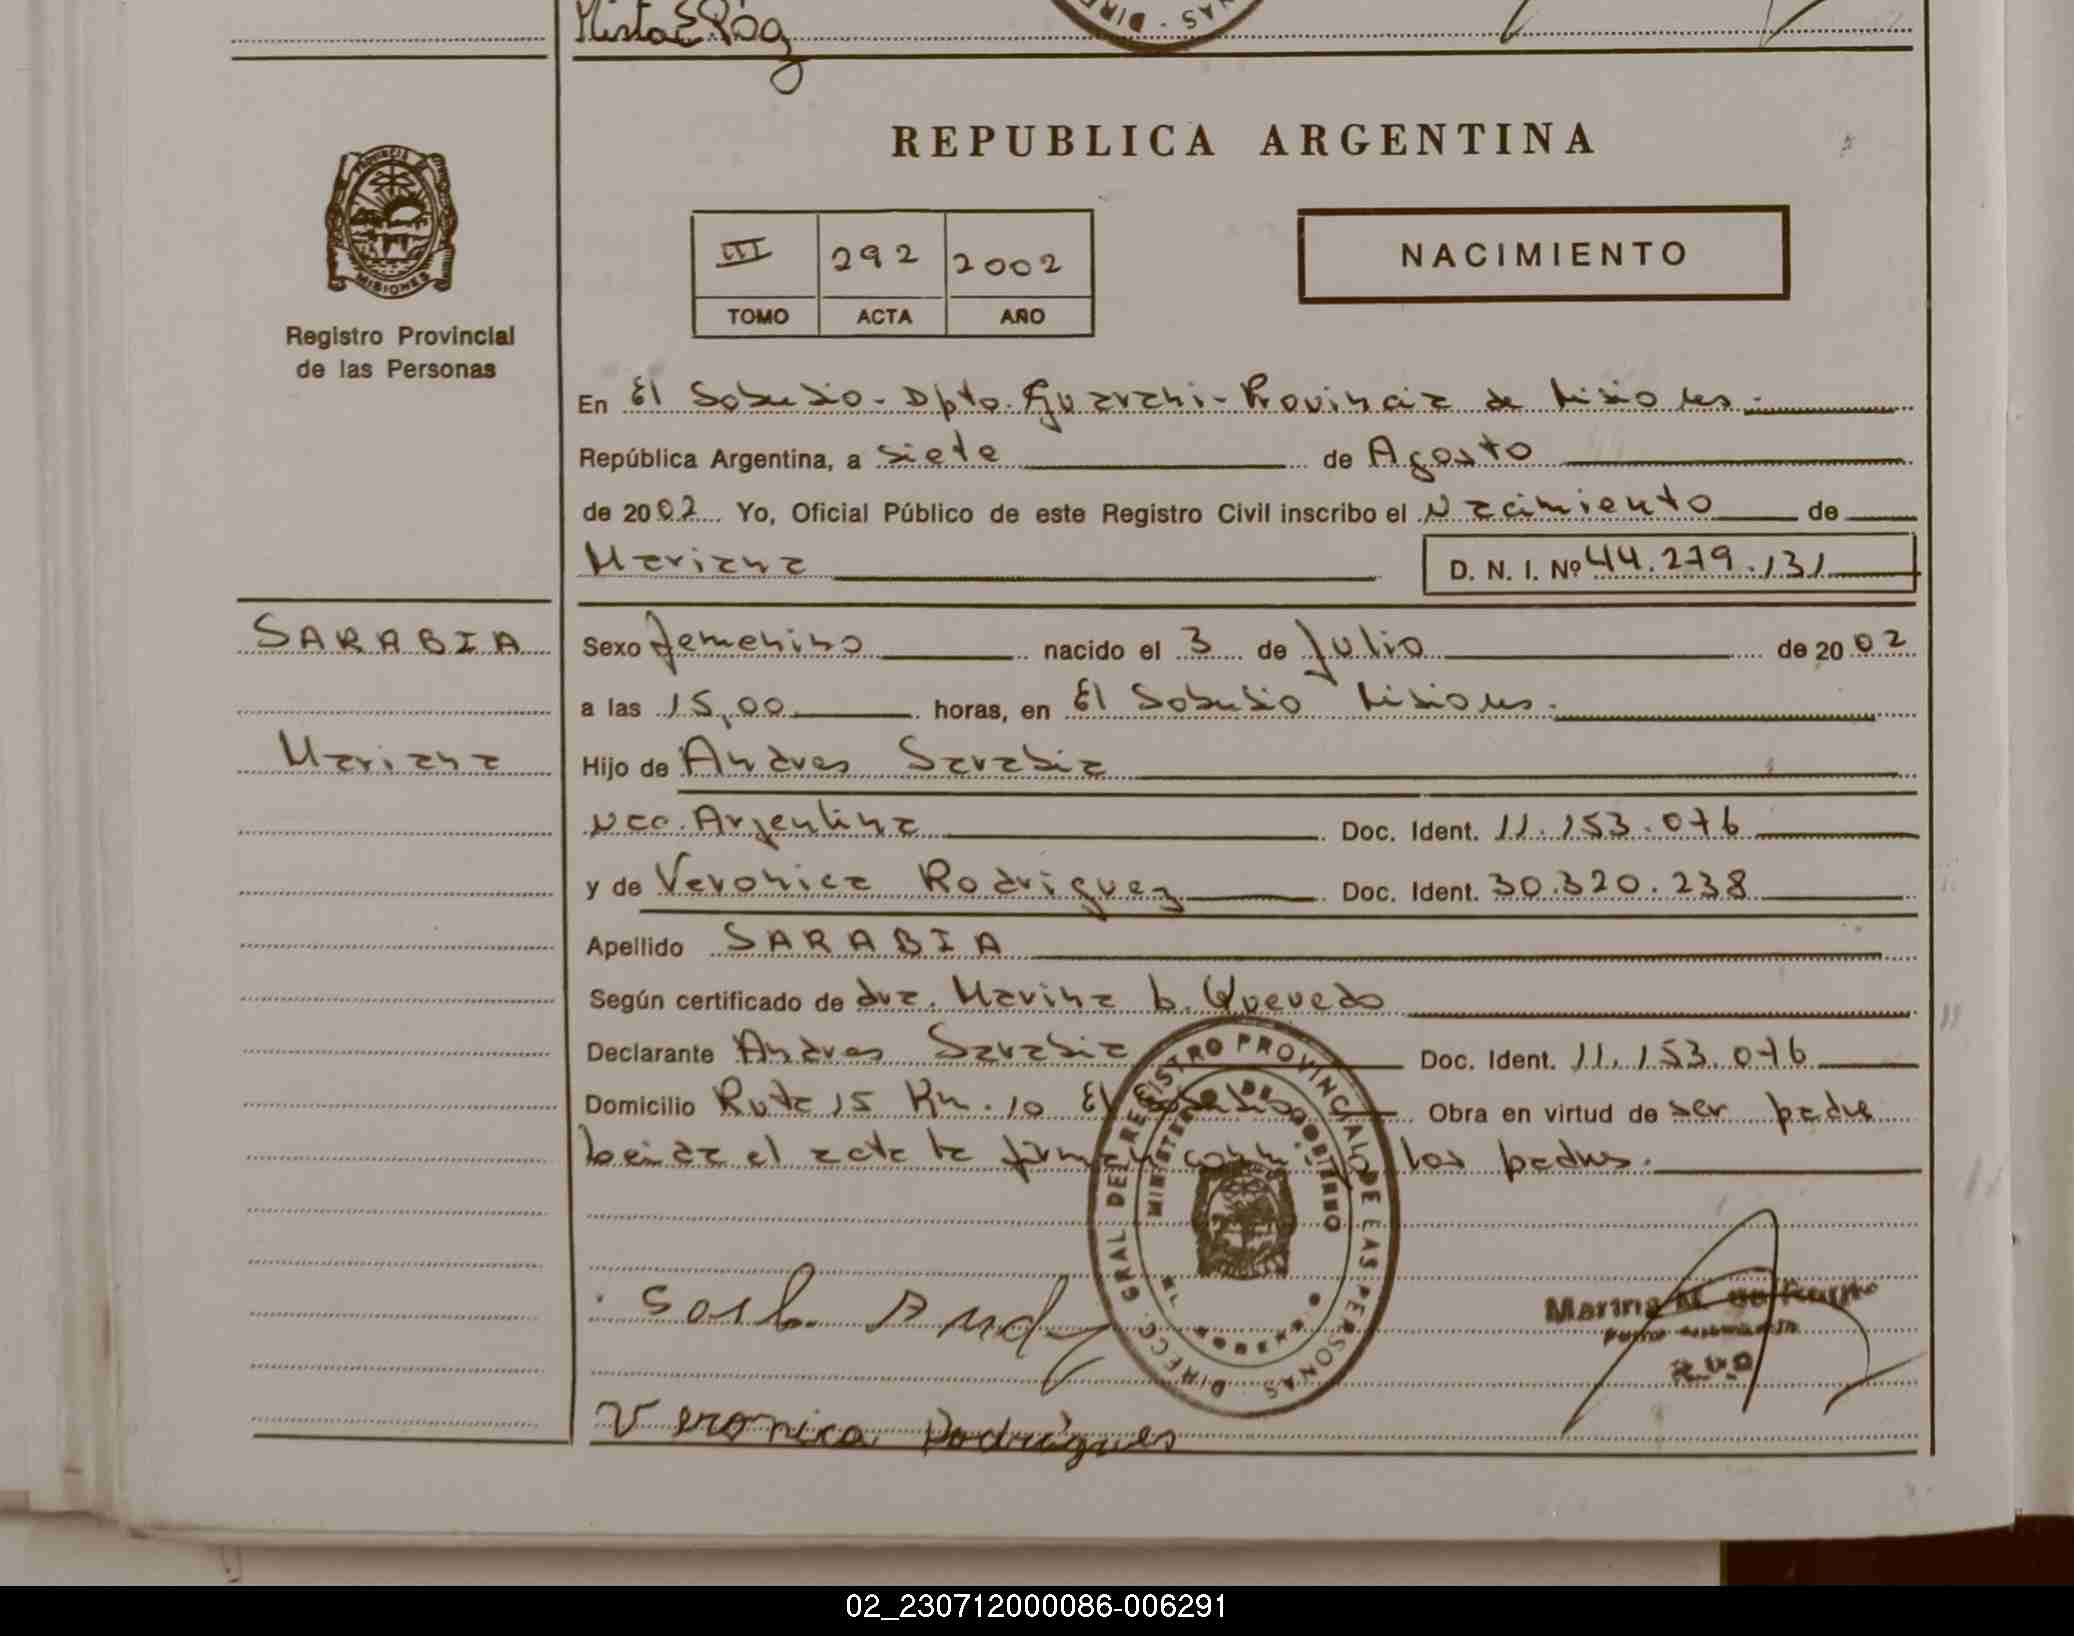 REPUBLICA ARGENTINA
PROVINCIA DE
MISIONES
Registro Provincial
de las Personas
III 292 2002
TOMO ACTA AÑO
NACIMIENTO
En El Soberbio - Dpto. Guarani - Provincia de Misiones.
República Argentina, a siete de Agosto
de 2002 Yo, Oficial Público de este Registro Civil inscribo el Nacimiento de
Mariana D. N. I. Nº 44.279.131
SARABIA
Mariana
Sexo femenino nacido el 3 de Julio de 2002
a las 15,00 horas, en El Soberbio Misiones.
Hijo de Andres Sarabia
Nac. Argentina Doc. Ident. 11.153.076
y de Veronica Rodriguez Doc. Ident. 30.320.238
Apellido SARABIA
Según certificado de dra. Marina b. Quevedo
Declarante Andres Sarabia Doc. Ident. 11.153.076
Domicilio Ruta 15 Km. 10 El Soberbio Obra en virtud de ser padre
Leida el acta la firman los padres.
DIRECC. GRAL DEL REGISTRO PROVINCIAL DE LAS PERSONAS
MINISTERIO DE GOBIERNO
Marina M. de
Veronica Rodrigues
02_230712000086-006291